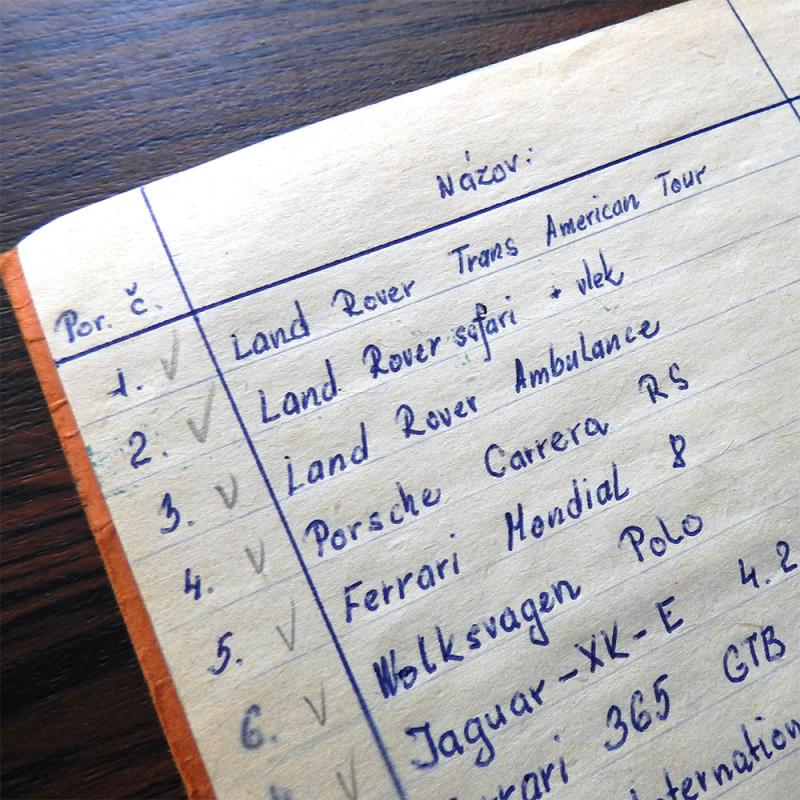 Názov:
Por. č.
1. Land Rover Trans American Tour
2. Land Rover safari + vlek
3. Land Rover Ambulance
4. Porsche Carrera RS
5. Ferrari Mondial 8
6. Wolksvagen Polo
Jaguar-XK-E 4.2
365 GTB